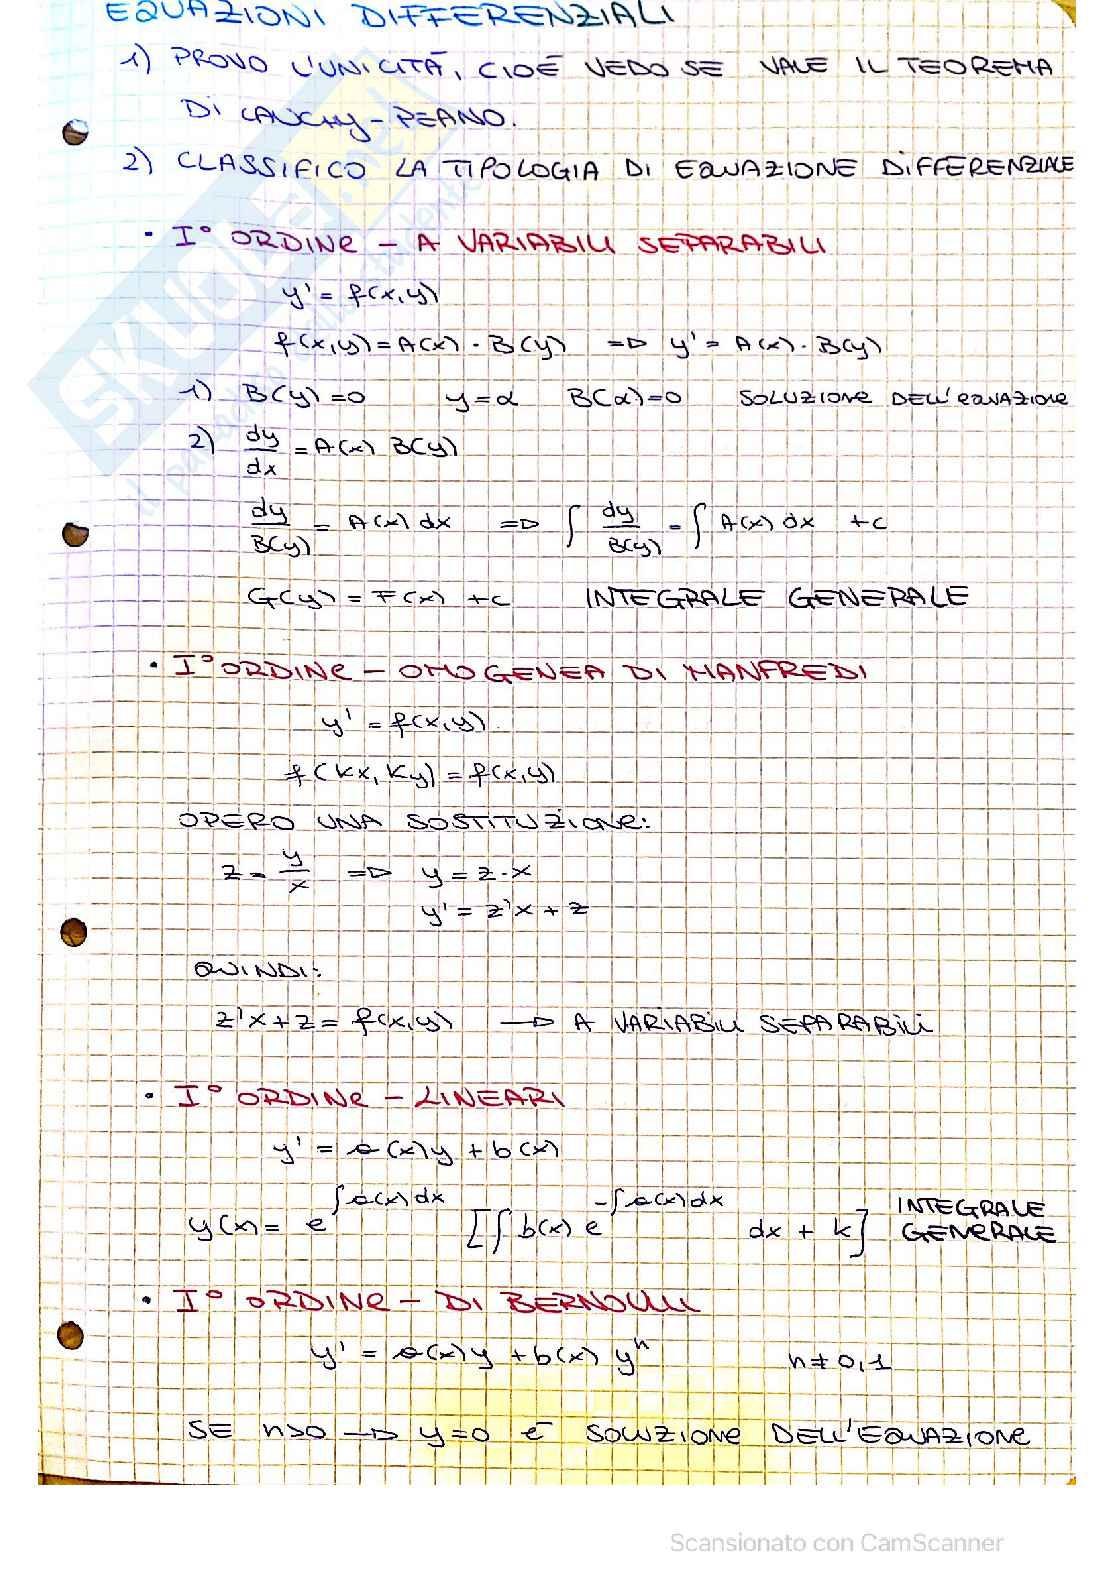 EQUAZIONI DIFFERENZIALI
1) PROVO L'UNICITÀ, CIOÈ VEDO SE VALE IL TEOREMA
DI CAUCHY-PEANO.
2) CLASSIFICO LA TIPOLOGIA DI EQUAZIONE DIFFERENZIALE
• I° ORDINE - A VARIABILI SEPARABILI
y' = f(x,y)
f(x,y) = A(x) · B(y) => y' = A(x) · B(y)
1) B(y)=0 y=α B(α)=0 SOLUZIONE DELL'EQUAZIONE
2) dy/dx = A(x) B(y)
dy/B(y) = A(x) dx => ∫ dy/B(y) = ∫ A(x) dx + c
G(y) = F(x) + c INTEGRALE GENERALE
• I° ORDINE - OMOGENEA DI MANFREDI
y' = f(x,y).
f(kx, ky) = f(x,y)
OPERO UNA SOSTITUZIONE:
z = y/x => y = z·x
y' = z'x + z
QUINDI:
z'x + z = f(x,y) → A VARIABILI SEPARABILI
• I° ORDINE - LINEARI
y' = a(x)y + b(x)
y(x) = e^{∫a(x)dx} [∫ b(x) e^{-∫a(x)dx} dx + k] INTEGRALE GENERALE
• I° ORDINE - DI BERNOULLI
y' = a(x)y + b(x) y^n n≠0,1
SE n>0 → y=0 È SOLUZIONE DELL'EQUAZIONE
SKUOLA.net
Scansionato con CamScanner